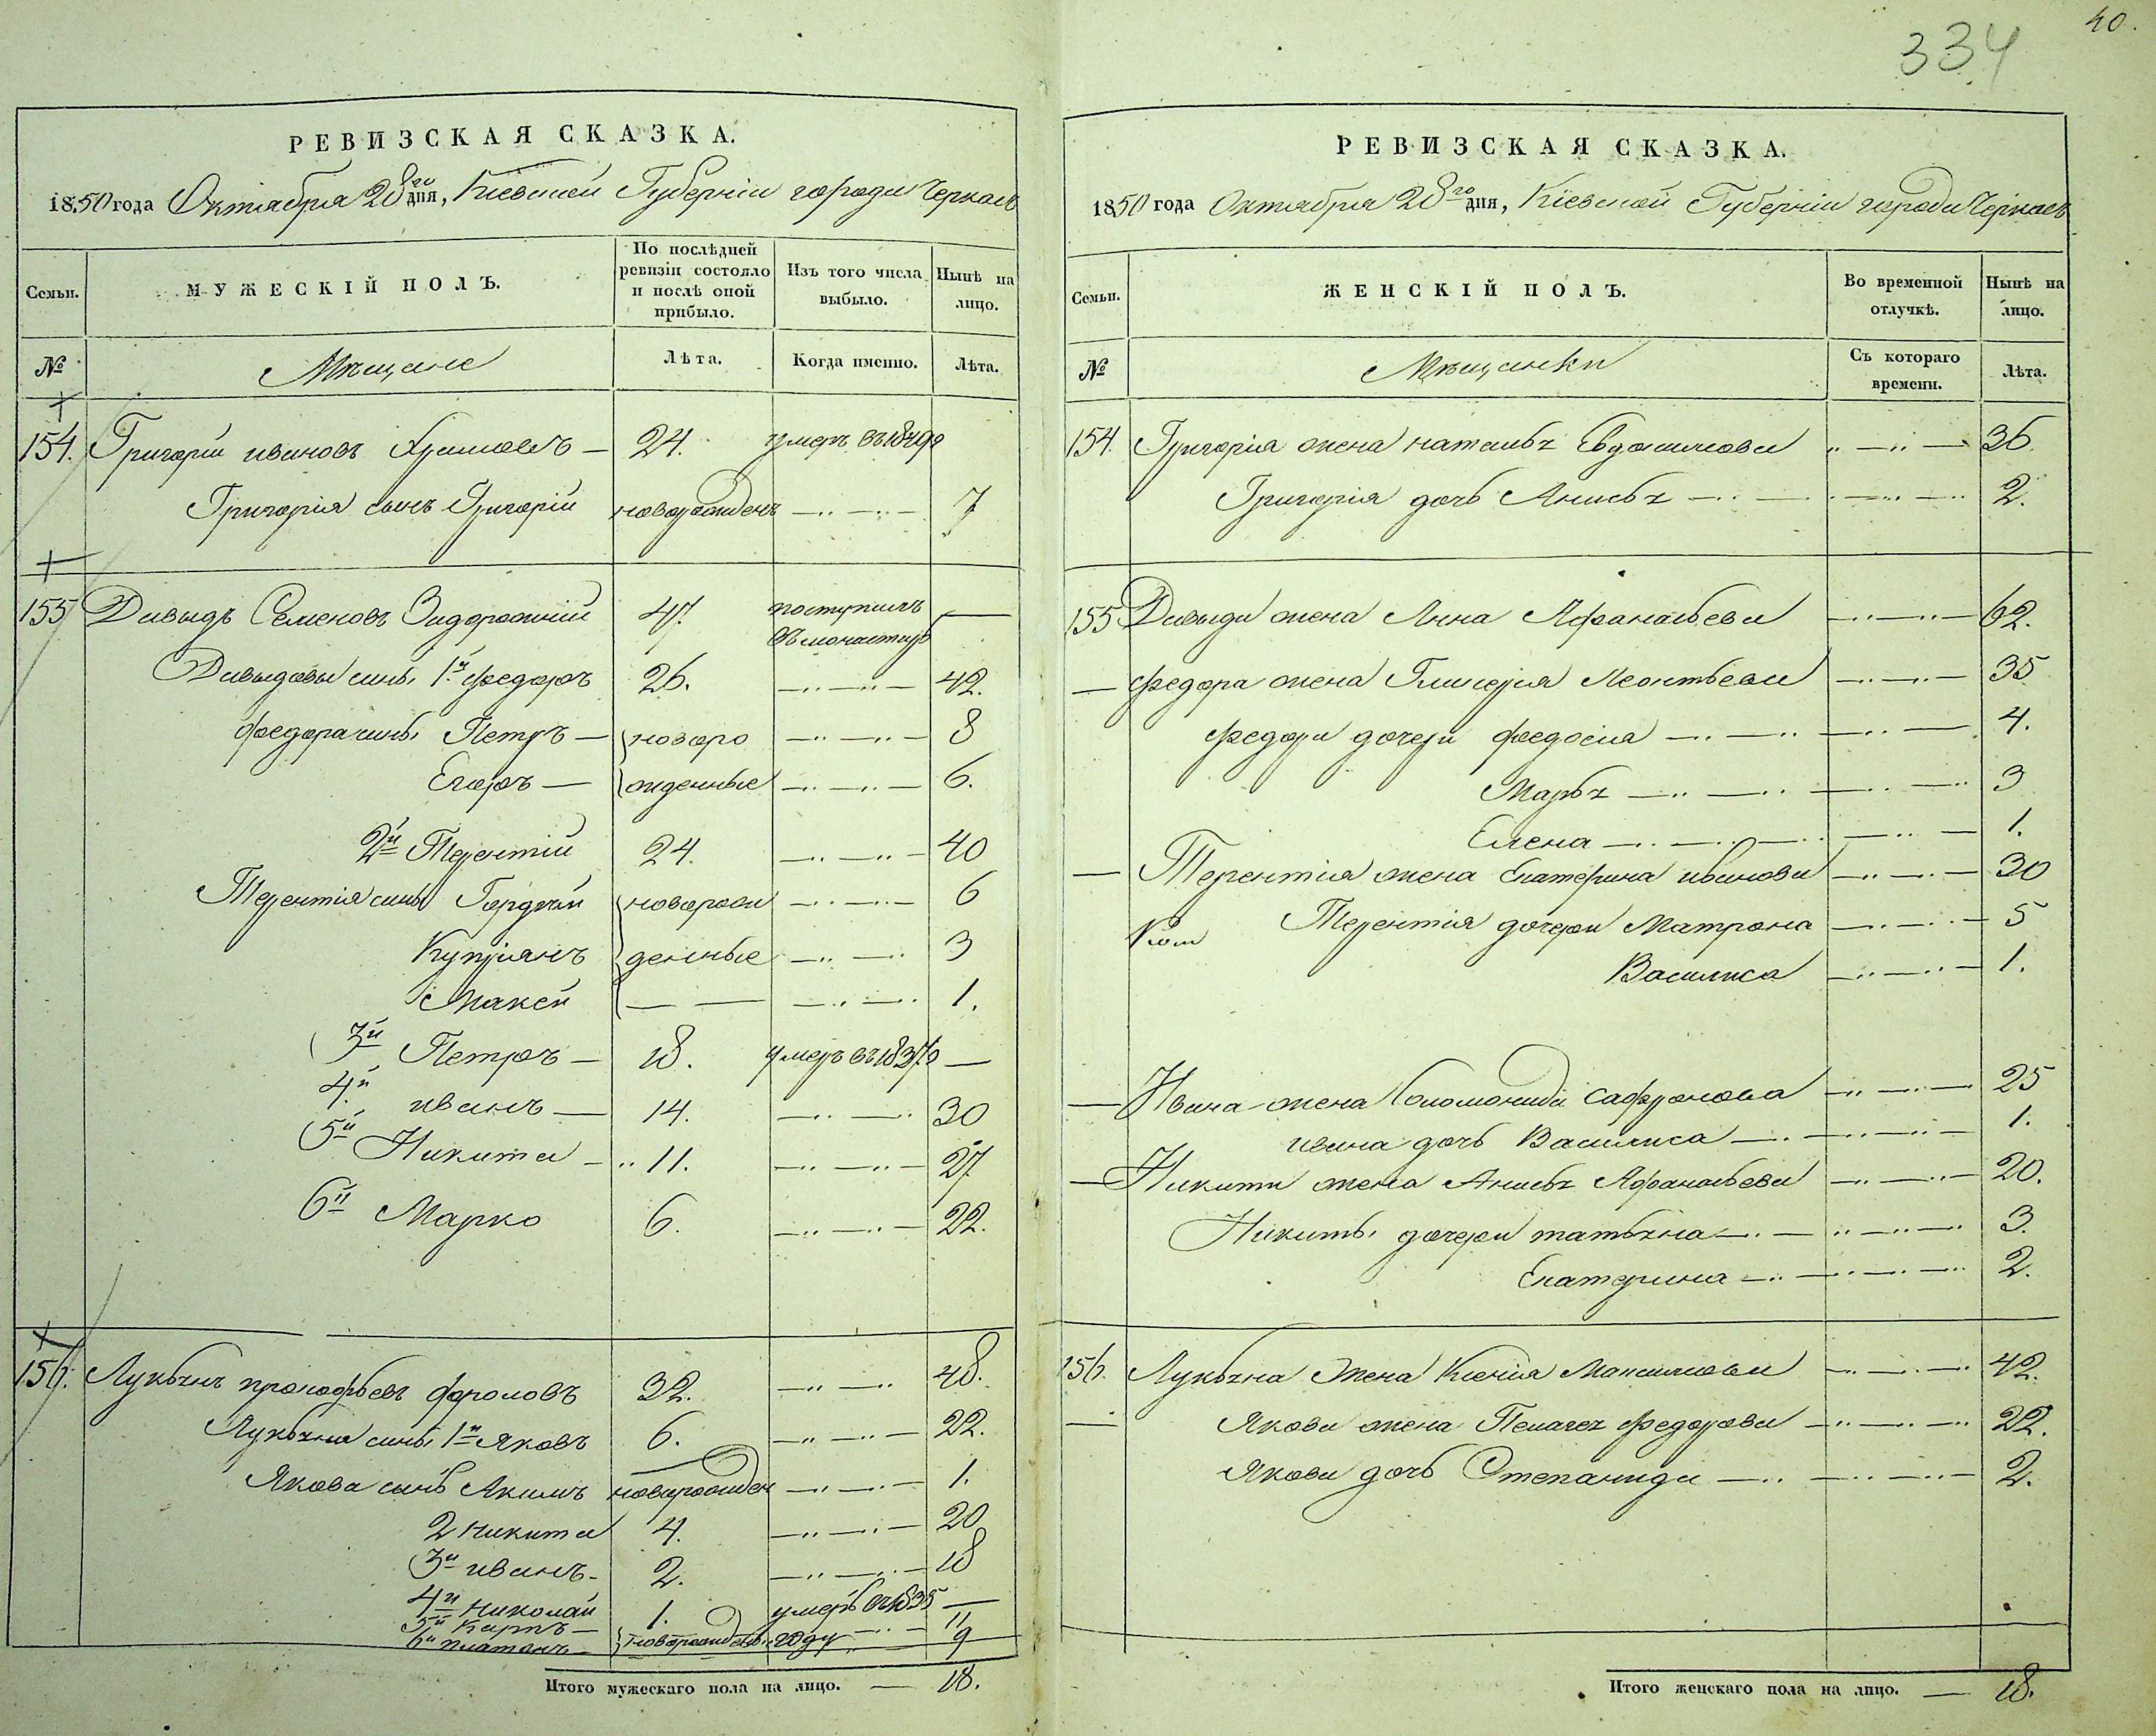 40.
334
РЕВИЗСКАЯ СКАЗКА.
1850 года Октября 28го дня, Кіевской Губерніи города Черкасъ
Семьи.
МУЖЕСКІЙ ПОЛЪ.
По послѣдней ревизіи состояло и послѣ оной прибыло.
Изъ того числа выбыло.
Нынѣ на лицо.
№
Мѣщане
Лѣта.
Когда именно.
Лѣта.
154. Григорій ивановъ 24. умеръ въ 1849
Григорія сынъ Григорій новорожденъ 7
155 Давыдъ Семеновъ 47. поступилъ —
въ монастырь
Давыдовы сынъ 1й Федоръ 26. 42.
Федора сынъ Петръ — новоро 8
Егоръ — жденные 6.
2й Терентій 24. 40
Терентія сынъ Гордѣй новорож 6
Купріянъ денные 3
Макей — — 1.
3й Петръ — 18. умеръ въ 1837 —
4й иванъ — 14. 30
5й Никита — 11. 27
6й Марко 6. 22.
156. Лукьянъ прокофьевъ фроловъ 32. 48.
Лукьяна сынъ 1й Яковъ 6. 22.
Якова сынъ Акимъ новорожден 1.
2 Никита 4. 20
3й иванъ 2. 18
4й Николай 1. умеръ въ 1835 —
5й Карпъ — 11
6й платонъ — новорожден году 9
Итого мужескаго пола на лицо. — 18.
РЕВИЗСКАЯ СКАЗКА.
1850 года Октября 28го дня, Кіевской Губерніи города Черкасъ
Семьи.
ЖЕНСКІЙ ПОЛЪ.
Во временной отлучкѣ.
Нынѣ на лицо.
№
Мѣщанки
Съ котораго времени.
Лѣта.
154. Григорія жена наталья Евдокимова 36.
Григорія дочь Анисья 2.
155 Давыда жена Анна Афанасьева 62.
— Федора жена Гликерія Леонтьева 35
Федора дочери Федосія 4.
Марья 3
Елена 1.
— Терентія жена Екатерина иванова 30
Терентія дочери Матрона 5
Василиса 1.
— Ивана жена Соломонида Сафронова 25
ивана дочь Василиса 1.
— Никиты жена Анисья Афанасьева 20.
Никиты дочери татьяна 3.
Екатерина 2.
156. Лукьяна Жена Ксенія Максимова 42.
— Якова жена Пелагея Федорова 22.
Якова дочь Степанида 2.
Итого женскаго пола на лицо. — 18.